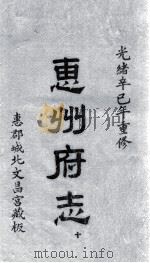 光緒辛巳年重修
惠州府志
十
惠郡城北文昌宮藏板
www.10xuewen.com